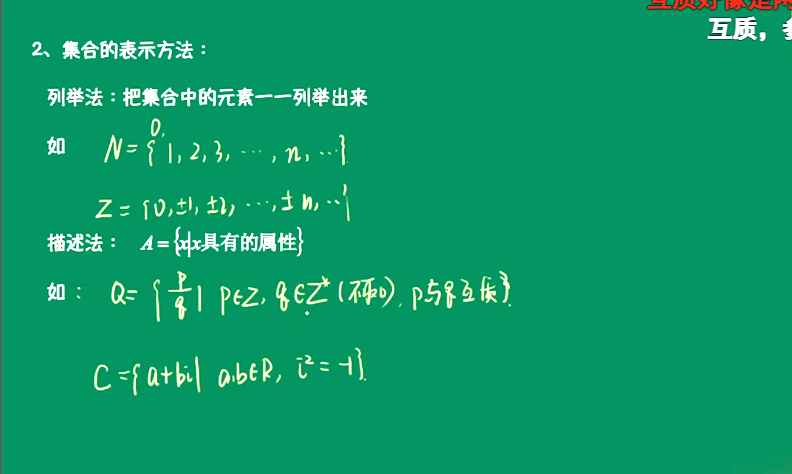 互质好像是两
互质，参
2、集合的表示方法：
列举法：把集合中的元素一一列举出来
如 N={0, 1, 2, 3, ⋯, n, ⋯}
Z={0, ±1, ±2, ⋯, ±n, ⋯}
描述法： A={x|x具有的属性}
如： Q={p/q | p∈Z, q∈Z*(不取0), p与q互质}
C={a+bi | a,b∈R, i²=-1}